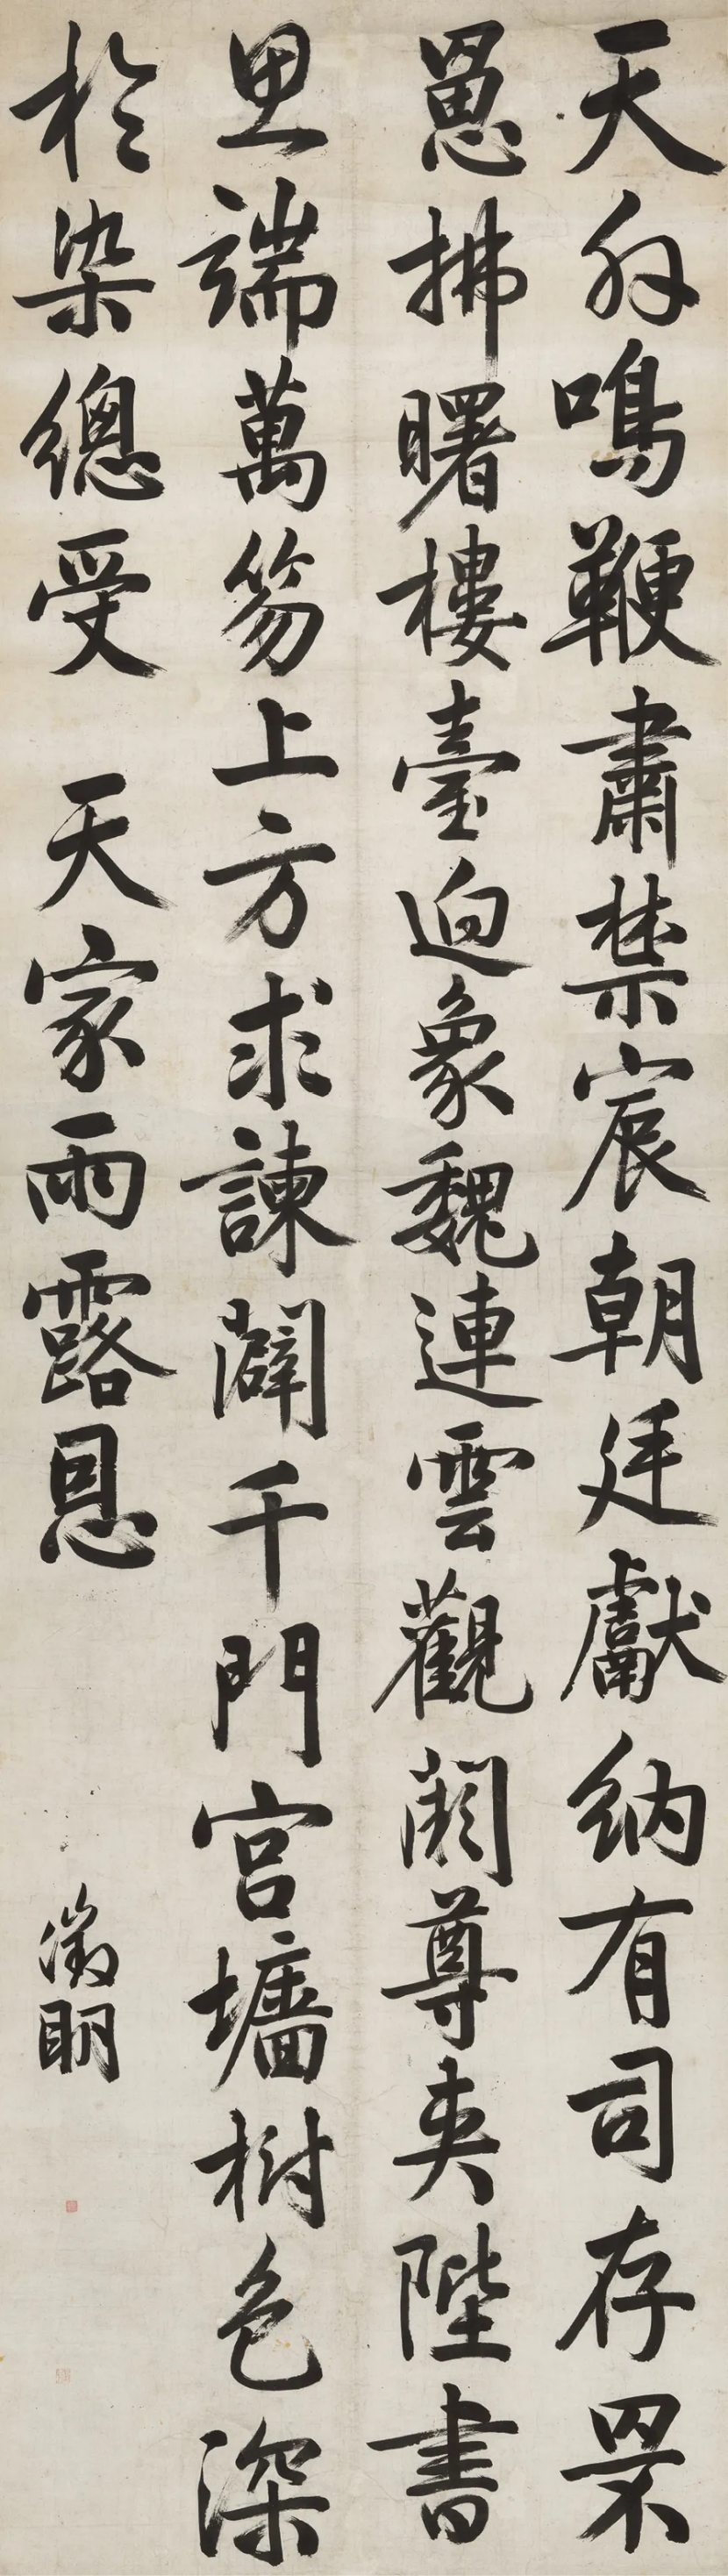 天外鳴鞭肅禁宸朝廷獻納有司存罘
罳拂曙樓臺迥象魏連雲觀闕尊夾陛書
思端萬笏上方求諫闢千門宮墻樹色深
於染總受 天家雨露恩
徵明